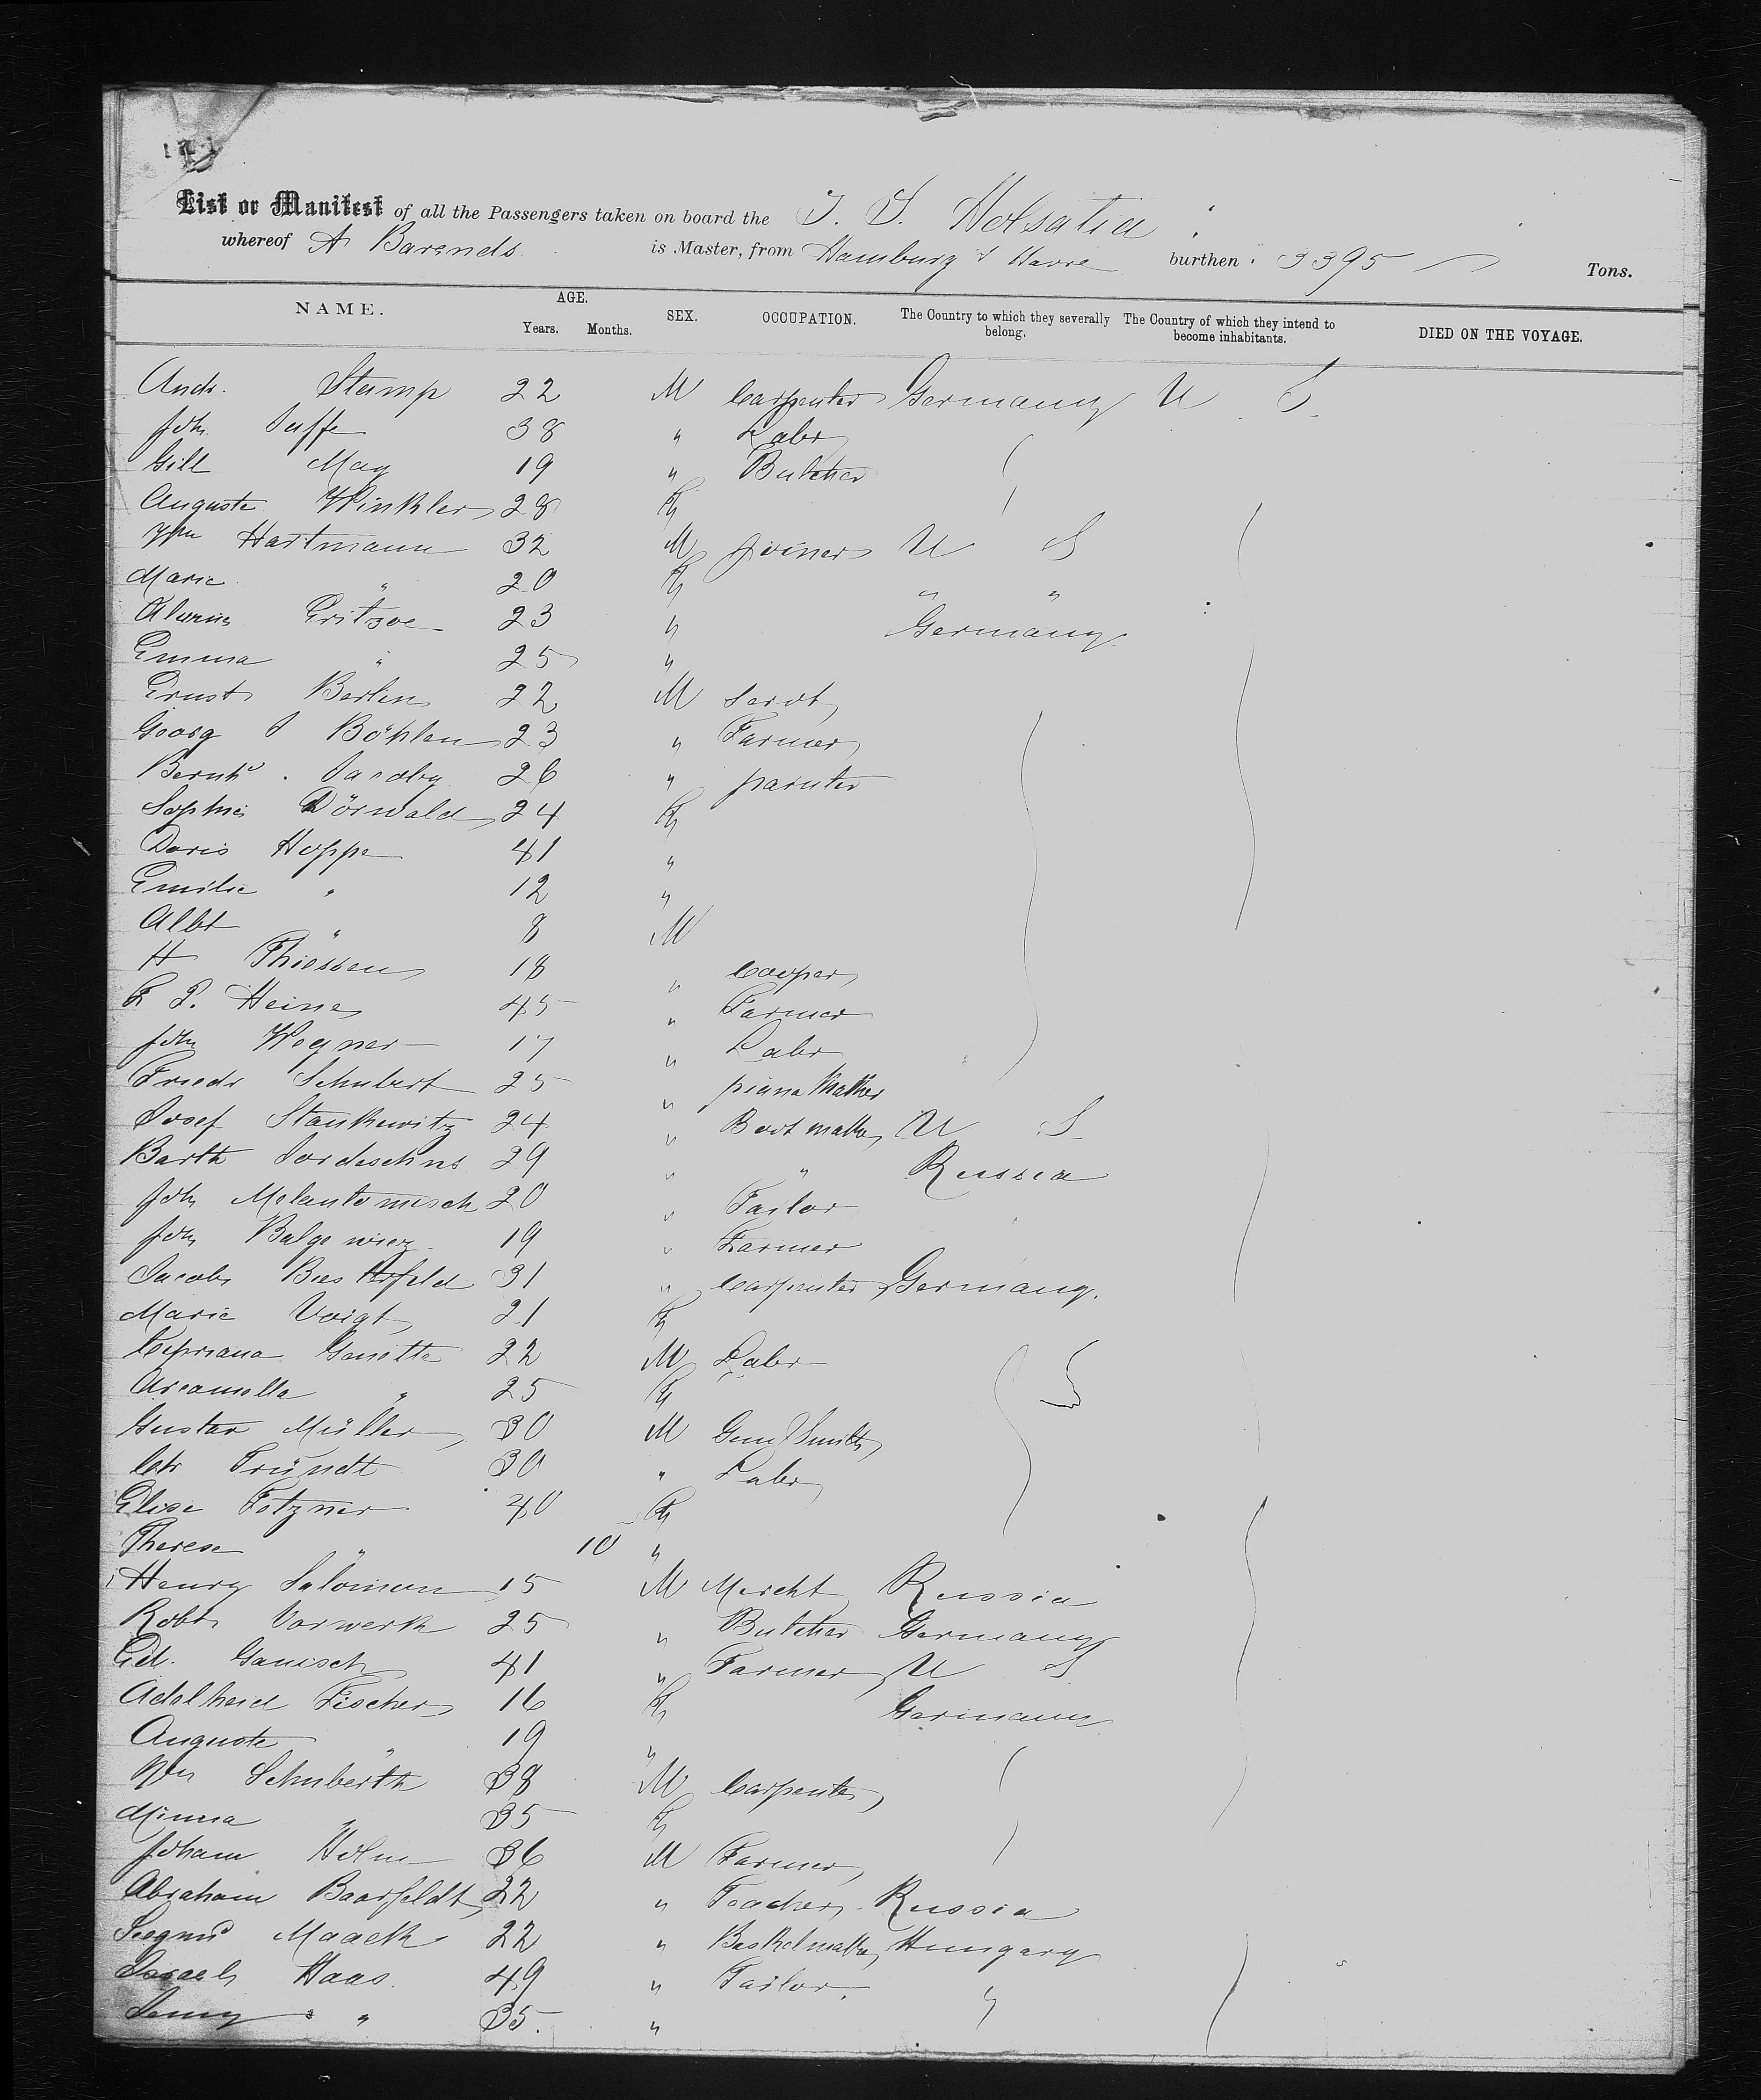 List or Manifest of all the Passengers taken on board the T. S. Holsatia
whereof A Barends is Master, from Hamburg & Havre burthen 3395 Tons.
NAME. AGE. Years. Months. SEX. OCCUPATION. The Country to which they severally belong. The Country of which they intend to become inhabitants. DIED ON THE VOYAGE.
Andr. Stamp 22 M Carpenter Germany U S.
Joh Jaffe 38 " Labr
Gill May 19 " Butcher
Auguste Winkler 28 F
Wm Hartmann 32 M Joiner U S
Marie " 20 F " "
Gritzoe 23 " Germany
Emma " 25 "
Ernst Berlin 22 M Servt
Georg J Böhlen 23 " Farmer
Bernhd. Jacoby 26 " painter
Sophie Dörwald 24 F
Doris Hoppe 41 "
Emilie " 12 "
Albt " 8 M
H Thiessen 18 " Cooper
F P. Heine 45 " Farmer
Joh Wegner 17 " Labr
Friedr Schubert 25 " piano Maker
Josef Stankewitz 24 " Boot maker U S
Barth 29 " " Russia
Joh 20 " Tailor
Joh 19 " Farmer
Jacob Biesterfeld 31 " Carpenter Germany.
Marie Voigt 21 F
Cepriana 22 M Labr
" 25 F
Gustav Müller 30 M Gun Smith
Ch Fründt 30 " Labr
Elise Fotzner 40 F
Therese " 10 "
Henry Salomon 15 M Mercht Russia
Robt Vorwerk 25 " Butcher Germany
Ed. Ganisch 41 " Farmer U S
Adelheid Fischer 16 F Germany
Auguste " 19 "
Wm Schuberth 38 M Carpenter
Minna " 35 F
Johann Holm 36 M Farmer
Abraham Baarfeldt 22 " Teacher Russia
Siegmd Maack 22 " Basketmaker Hungary
Israel Haas. 49 " Tailor. "
Jenny " 35. "